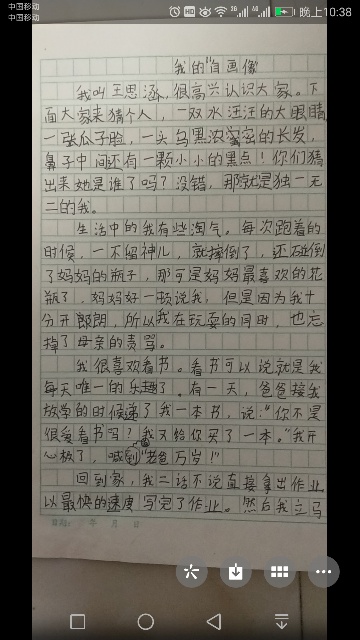 中国移动
中国移动
HD
晚上10:38
我的"自画像
我叫王思涵,很高兴认识大家。下
面大家来猜个人,一双水汪汪的大眼睛
一张瓜子脸,一头乌黑浓密的长发,
鼻子中间还有一颗小小的黑点!你们猜
出来她是谁了吗?没错,那就是独一无
二的我。
生活中的我有些淘气。每次跑着的
时候,一不留神儿,就摔倒了,还碰倒
了妈妈的瓶子,那可是妈妈最喜欢的花
瓶了,妈妈好一顿说我,但是因为我十
分开郎朗,所以我在玩耍的同时,也忘
掉了母亲的责骂。
我很喜欢看书。看书可以说就是我
每天唯一的乐趣了。有一天,爸爸接我
放学的时候递了我一本书,说:"你不是
很爱看书吗?我又给你买了一本。"我开
心极了,喊到"老爸万岁!"
回到家,我二话不说直接拿出作业
以最快的速度写完了作业。然后我立马
年 月 日